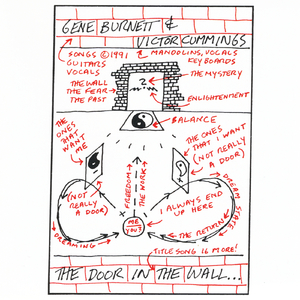 GENE BURNETT &
VICTOR CUMMINGS
SONGS ©1991
GUITARS
VOCALS
& MANDOLINS, VOCALS
KEYBOARDS
THE WALL
THE FEAR
THE PAST
?
THE MYSTERY
ENLIGHTENMENT
BALANCE
THE ONES
THAT
WANT ME
THE ONES
THAT I WANT
(NOT REALLY
A DOOR)
(NOT
REALLY
A DOOR)
FREEDOM
THE WORK
I ALWAYS END
UP HERE
ME
YOU?
DREAMING
DREAM STATE
THE RETURN
TITLE SONG 16 MORE!
THE DOOR IN THE WALL...